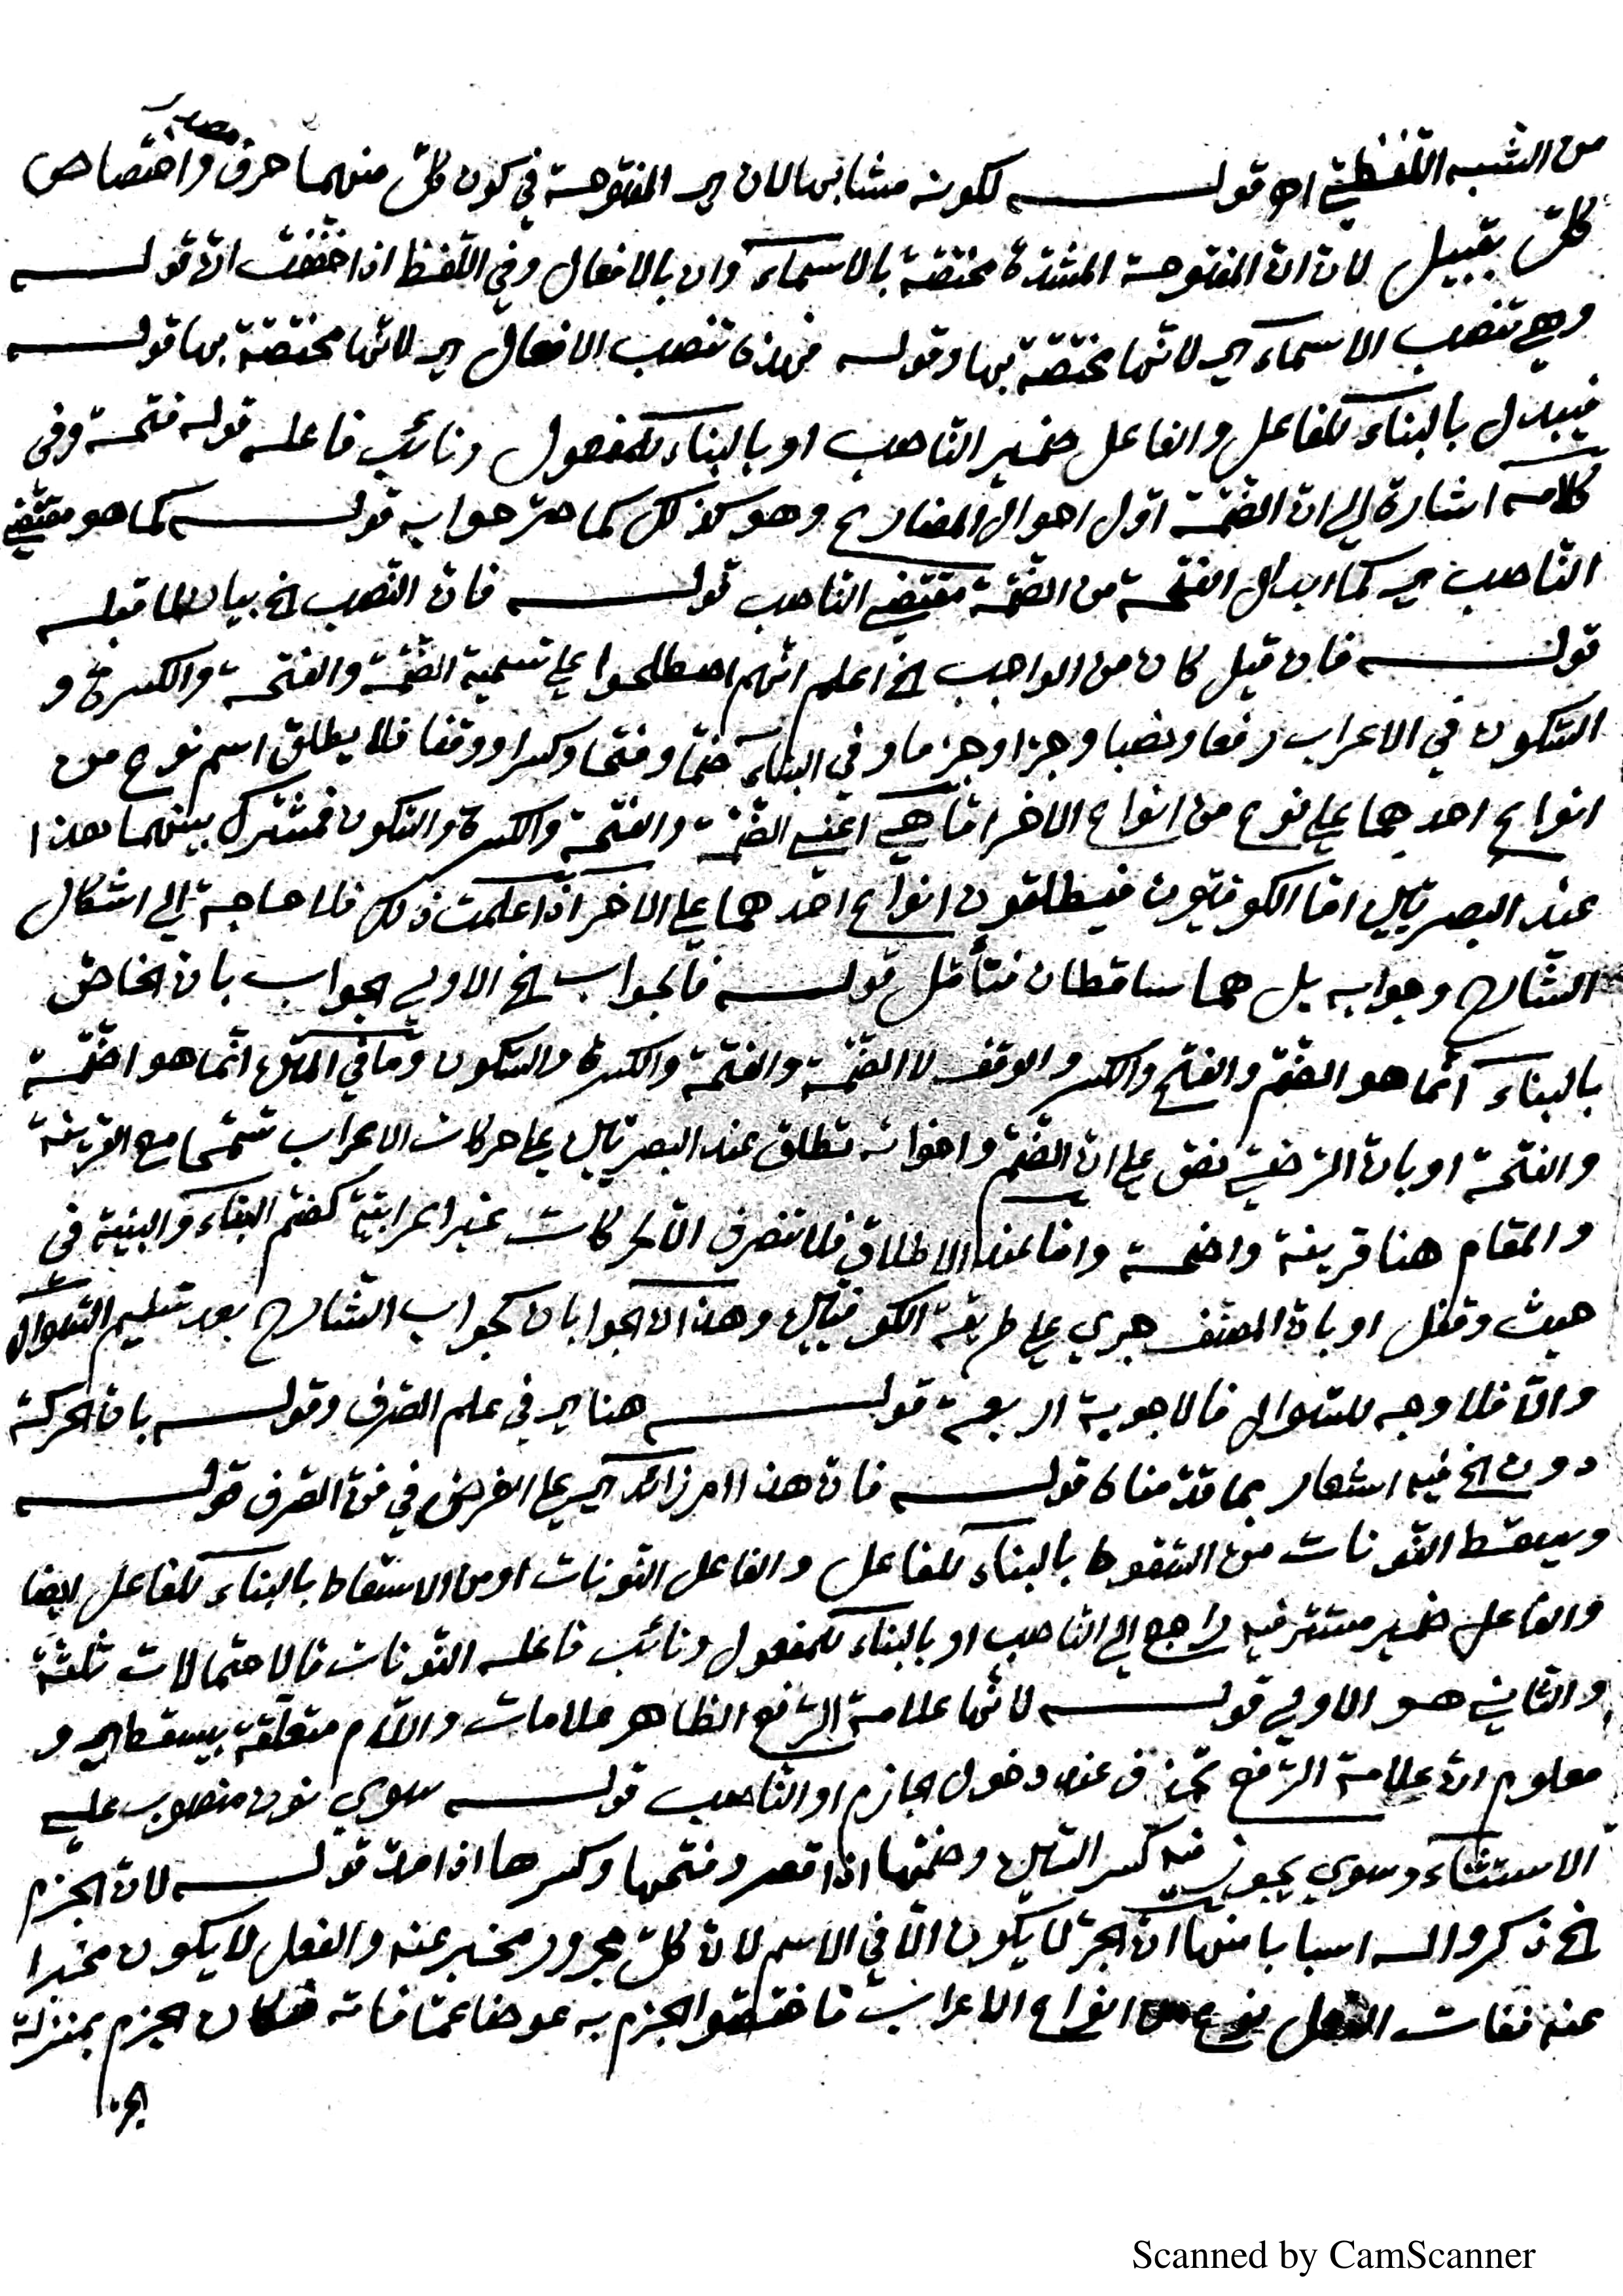 مصدر
من الشبه اللفظي اهـ قولـــه لكونه مشابها لان اي المفتوحة في كون كلّ منهما حرف واختصاص
كلّ بقبيل لان انّ المفتوحة المشدّدة مختصّة بالاسماء وان بالافعال وفي اللّفظ اذا خفّفت انّ قولـــه
وهي تنصب الاسماء اي لانّها مختصّة بها وقوله فهذه تنصب الافعال اي لانّها مختصّة بها قولـــه
فيبدل بالبناء للفاعل والفاعل ضمير النّاصب او بالبناء للمفعول ونائب فاعله قوله فتحة وفي
كلامه اشارة الى انّ الضّمّة اوّل احوال المضارع وهو كذلك كما صرّحوا به قولـــه كما هو مقتضى
النّاصب اي كما ابدال الفتحة من الضّمّة مقتضى النّاصب قولـــه فانّ النّصب الخ بيان لما قبله
قولـــه فان قيل كان من الواجب الخ اعلم انّهم اصطلحوا على تسمية الضّمّة والفتحة والكسرة و
السّكون في الاعراب رفعا ونصبا وجرّا وجزما وفي البناء ضمّا وفتحا وكسرا ووقفا فلا يطلق اسم نوع من
انواع احدهما على نوع من انواع الاخر امّا هي اعني الضّمّة والفتحة والكسرة والسّكون فمشترك بينهما هذا
عند البصريّين امّا الكوفيّون فيطلقون انواع احدهما على الاخر اذا علمت ذلك فلا حاجة الى اشكال
الشّارح وجوابه بل هما ساقطان فتأمّل قولـــه فالجواب الخ الاولى الجواب بان الخاصّ
بالبناء انّما هو الضّمّ والفتح والكسر والوقف لا الضّمّة والفتحة والكسرة والسّكون وما في المتن انّما هو الضّمّة
والفتحة او بانّ الرّضيّ نصّ على انّ الضّمّ واخواته تطلق عند البصريّين على حركات الاعراب تسمّحا مع القرينة
والمقام هنا قرينة واضحة وامّا عند الاطلاق فلا تنصرف الّا لحركات غير اعرابيّة كضمّ البناء والبنية في
حيث وقفل او بانّ المصنّف جرى على طريقة الكوفيّين وهذان الجوابان كجواب الشّارح بعد تسليم السّؤال
والّا فلا وجه للسّؤال فالاجوبة اربعة قولـــه هنا اي في علم الصّرف وقولـــه بانّ الحركة
دون الخ فيه اشعار بما قدّمناه قولـــه فانّ هذا امر زائد اي على الغرض في فنّ الصّرف قولـــه
ويسقط النّونات من السّقوط بالبناء للفاعل والفاعل النّونات او من الاسقاط بالبناء للفاعل ايضا
والفاعل ضمير مستتر فيه راجع الى النّاصب او بالبناء للمفعول ونائب فاعله النّونات فالاحتمالات ثلثة
والثّاني هو الاولى قولـــه لانّها علامة الرّفع الظاهر علامات واللّام متعلّقة بيسقط اي و
معلوم انّ علامة الرّفع تحذف عند دخول الجازم او النّاصب قولـــه سوى نون منصوب على
الاستثناء وسوى يجوز فيه كسر السّين وضمّها اذا قصر وفتحها وكسرها اذا مدّت قولـــه لانّ الجزم
الخ ذكروا له اسبابا منها انّ الجرّ لا يكون الّا في الاسم لانّ كلّ مجرور مخبر عنه والفعل لا يكون مخبرا
عنه ففات الفعل نوع من انواع الاعراب فاختصّوا الجزم به عوضا عمّا فاته فكان الجزم بمنزلة
الجرّ
Scanned by CamScanner